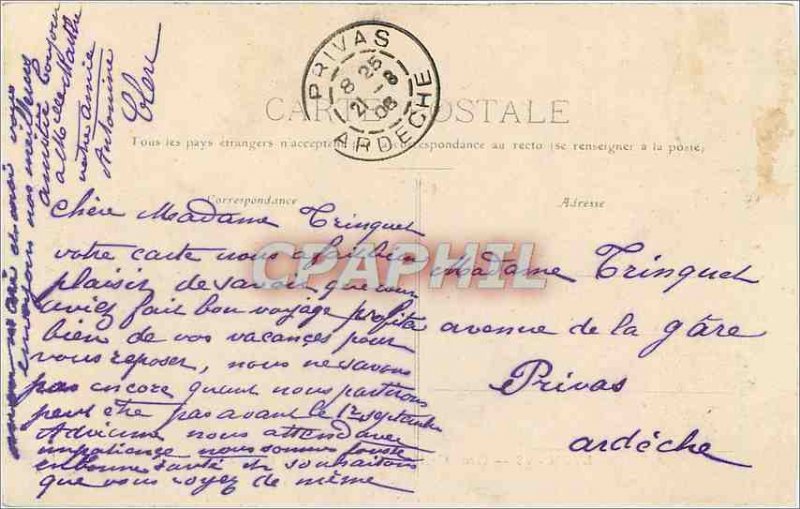 PRIVAS
8 25
21 -8
06
ARDÈCHE
CARTE POSTALE
Tous les pays étrangers n'acceptent pas la correspondance au recto (se renseigner à la poste)
Correspondance
Adresse
Chère Madame Trinquet
votre carte nous a fait bien
plaisir de savoir que vous
aviez fait bon voyage profite
bien de vos vacances pour
vous reposer, nous ne savons
pas encore quant nous partirons
peut être pas avant le 1er septembre
nous attend avec
impatience nous sommes touste
en bonne santé et souhaitons
que vous soyez de même
Madame Trinquet
avenue de la gâre
Privas
ardèche
mon mari et moi vous
envoyons nos meilleures
amitiés bonjour
a Melle Marthe
votre amie
Antonine
CPAPHIL